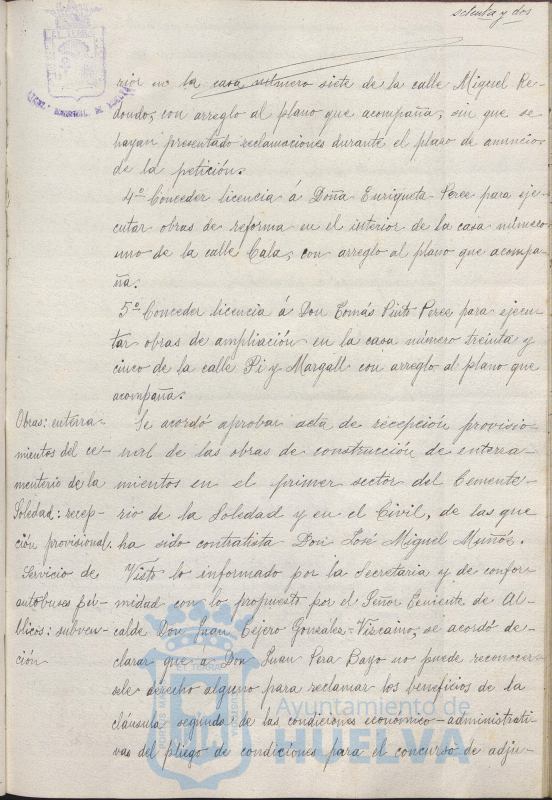 setenta y dos
rior en la casa número siete de la calle Miguel Re-
dondo, con arreglo al plano que acompaña, sin que se
hayan presentado reclamaciones durante el plazo de anuncio
de la petición.
4º Conceder licencia á Doña Enriqueta Perez para eje-
cutar obras de reforma en el interior de la casa número
uno de la calle Cala, con arreglo al plano que acompa-
ña.
5º Conceder licencia á Don Tomás Pinto Perez para ejecu-
tar obras de ampliación en la casa número treinta y
cinco de la calle Pi y Margall con arreglo al plano que
acompaña.
Obras: enterra-
mientos del ce-
menterio de la
Soledad: recep-
ción provisional.
Se acordó aprobar acta de recepción provisio-
nal de las obras de construcción de enterra-
mientos en el primer sector del Cemente-
rio de la Soledad y en el Civil, de las que
ha sido contratista Don José Miguel Muñóz.
Servicio de
autobuses pú-
blicos: subven-
ción
Visto lo informado por la Secretaria y de confor-
midad con lo propuesto por el Señor Teniente de Al-
calde Don Juan Tejero González-Vizcaino, se acordó de-
clarar que a Don Juan Pera Bayo no puede reconocer-
sele derecho alguno para reclamar los beneficios de la
cláusula segunda de las condiciones económico-administrati-
vas del pliego de condiciones para el concurso de adju-
Ayuntamiento de
HUELVA